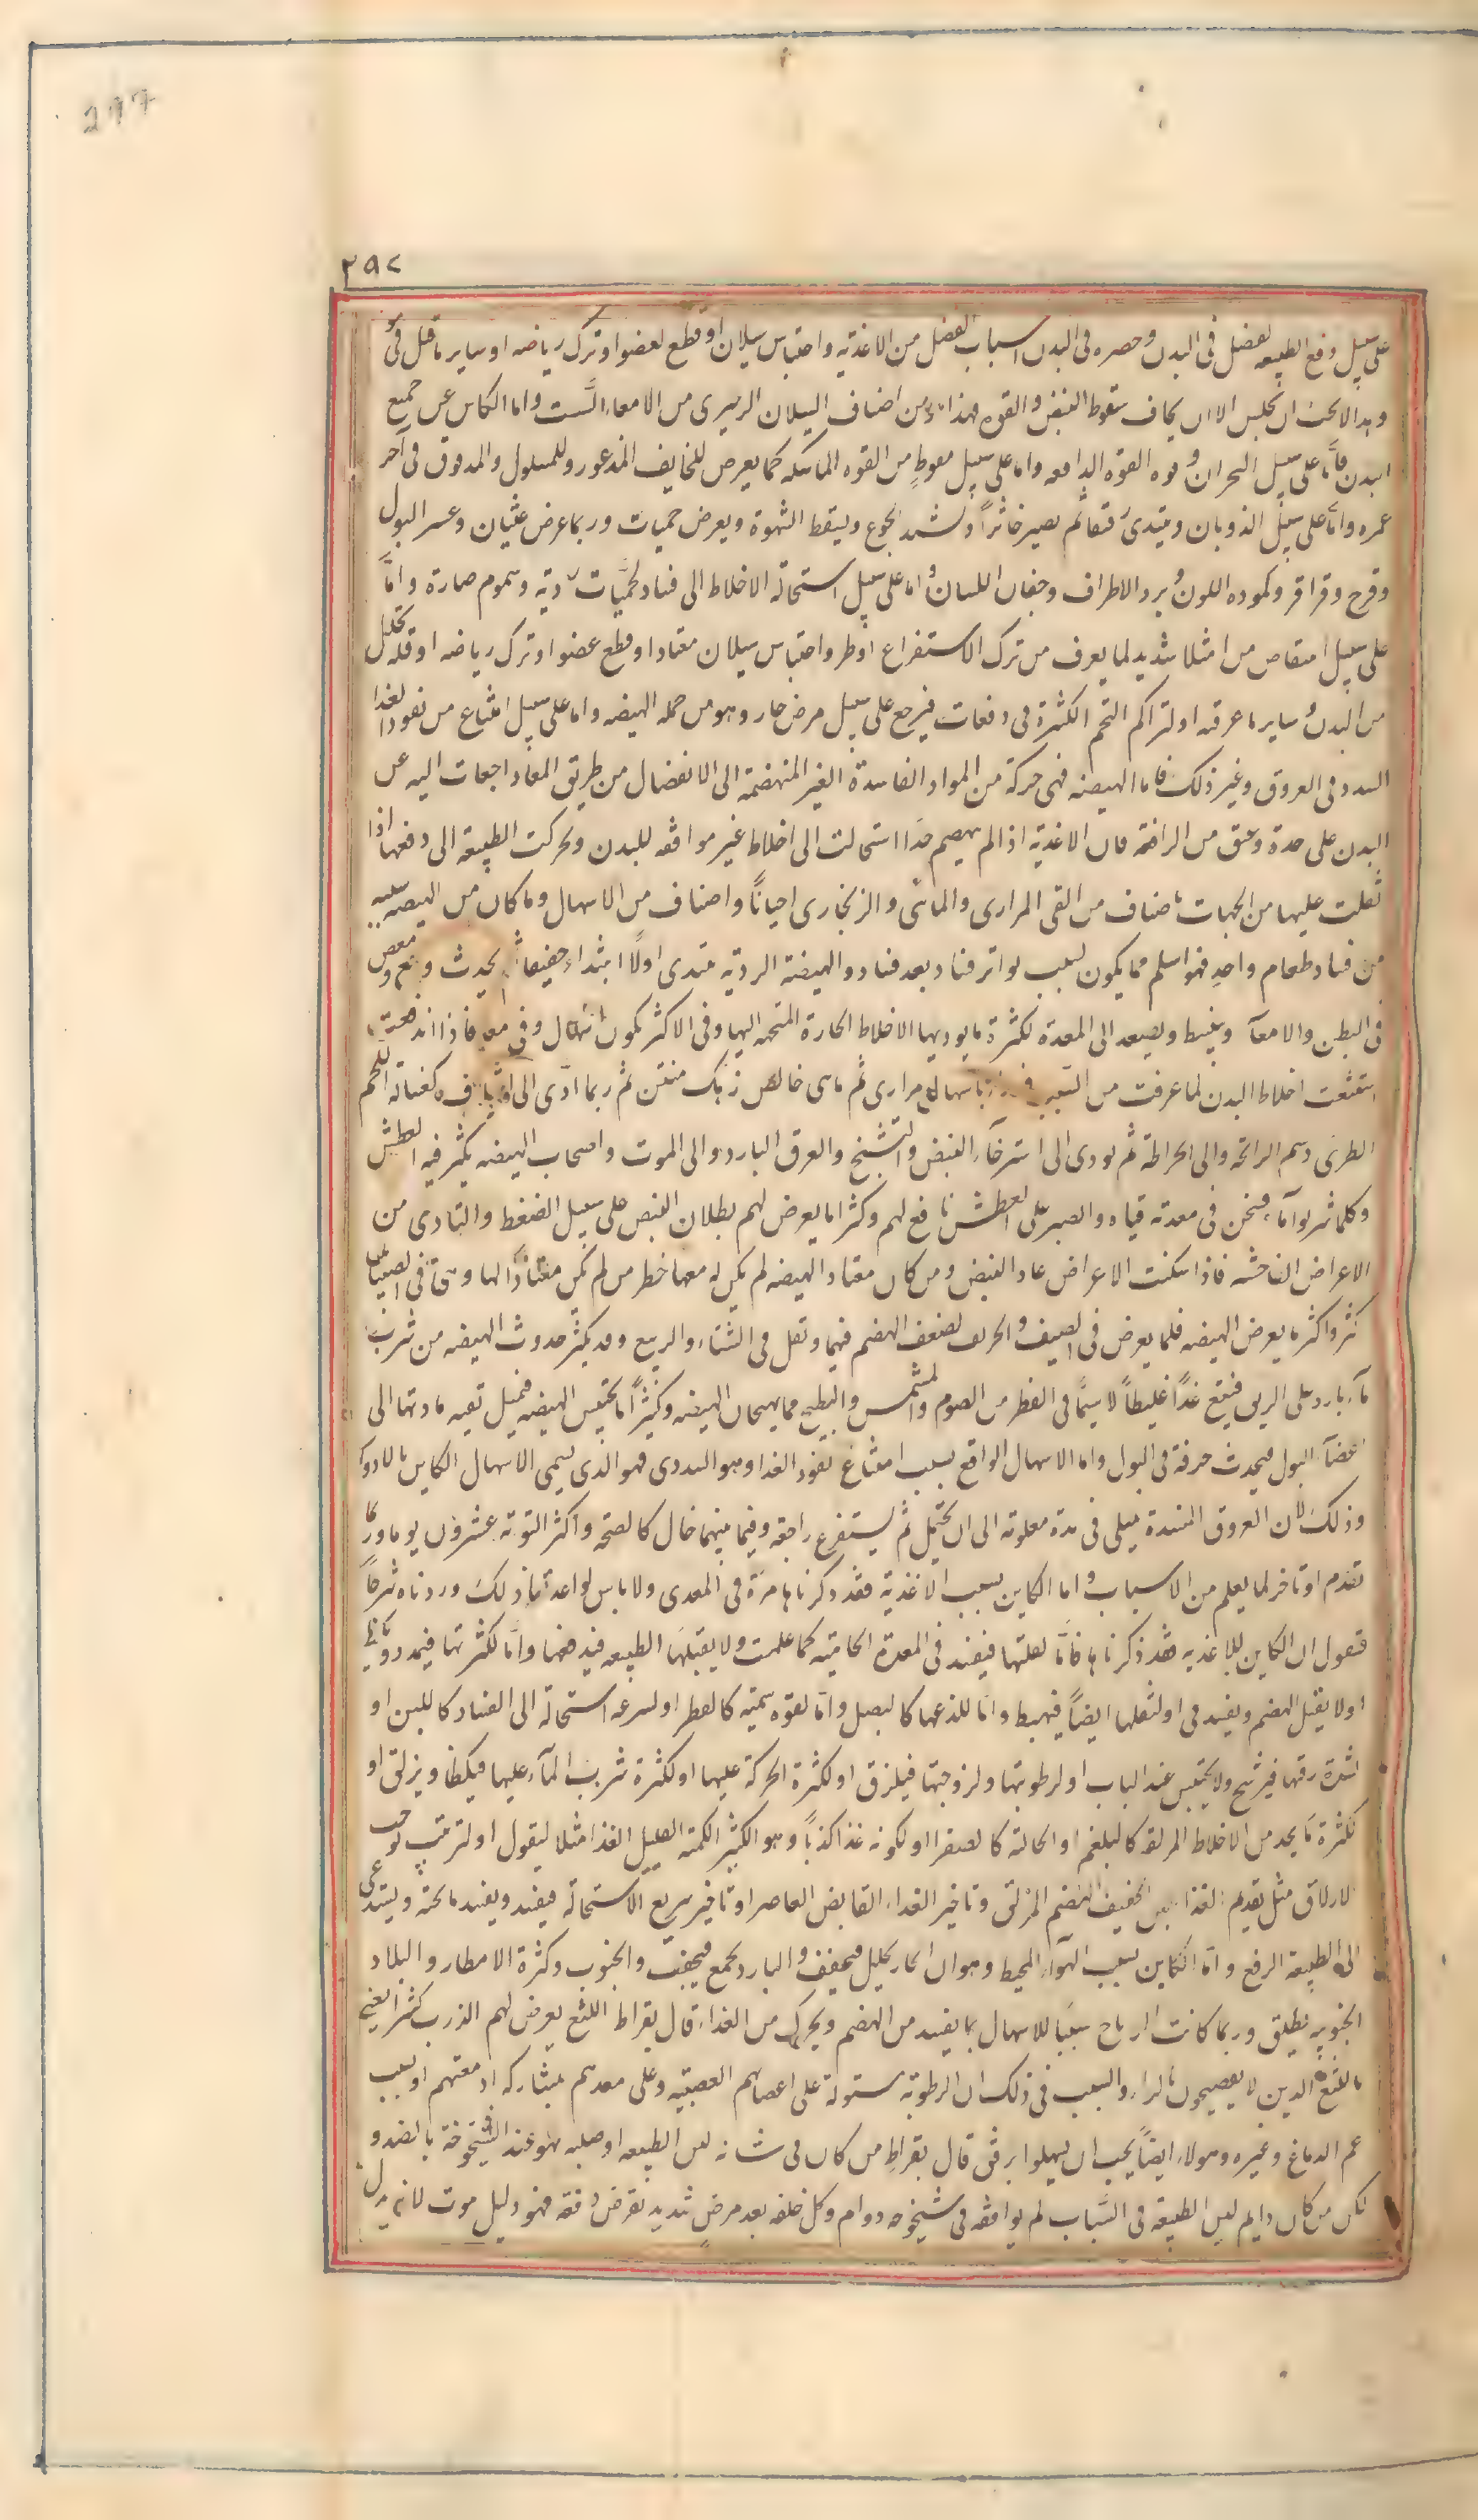 297
٢٩٧
على سبيل دفع الطبيعه لفضل فى البدن وحصره فى البدن اسباب الفضل من الاغذيه واحتباس سيلان او قطع لعضو او ترك رياضه او ساير ما قيل فى
وهذا لا يجب ان يحبس الا ان يخاف سقوط النبض والقوه فهذا من اصناف السيلان الرميرى من الامعاء الست واما الكاين عن جميع
البدن فاما على سبيل البحران وقوه القوه الدافعه واما على سبيل سقوط من القوه الماسكه كما يعرض للخايف المذعور وللمسلول والمدقوق فى آخر
عمره واما على سبيل الذوبان ويبتدى رقيقا ثم يصير خاثراً ويشتد الجوع ويسقط الشهوة ويعرض حميات وربما عرض غثيان وعسر البول
وقرح وقراقر وكموده اللون وبرد الاطراف وجفاف اللسان واما على سبيل استحالة الاخلاط الى فساد لحميات رديه وسموم ضارة واما
على سبيل انتقاص من امتلا شديد لما يعرف من ترك الاستفراغ او طرو احتباس سيلان معتاد او قطع عضو او ترك رياضه او قله تحلل
من البدن وساير ما عرفته او لتراكم التخم الكثيرة فى دفعات فيرجع على سبيل مرض حار وهو من جمله الهيضه واما على سبيل امتناع من نفوذ الغذا
السدد فى العروق وغير ذلك فاما الهيضه فهى حركة من المواد الفاسدة الغير المنهضمة الى الانفصال من طريق المعا راجعات اليه عن
البدن على حدة وعنف من الدافعة فان الاغذية اذا لم ينهضم جدا استحالت الى اخلاط غير موافقه للبدن وتحركت الطبيعة الى دفعها اذا
ثقلت عليها من الجهات باصناف من القى المرارى والمائى والزنجارى احياناً واصناف من الاسهال وما كان من الهيضه سببه
من فساد طعام واحد فهو اسلم مما يكون بسبب تواتر فساد بعد فساد والهيضة الرديه تبتدى اولاً ابتداء خفيفا ثم يحدث وجع ومغص
فى البطن والامعآ وينبسط ويصعد الى المعدة لكثرة ما يوديها الاخلاط الحارة المتجهه اليها وفى الاكثر يكون اسهال وقى معا فاذا اندفعت
استتبعت اخلاط البدن لما عرفت من السبب باسهال مرارى ثم ماى خالص زهك منتن ثم ربما ادى الى كغسالة اللحم
الطرى دسم الرائحة والى الخراطة ثم يودى الى استرخآء النبض والتشنج والعرق البارد والى الموت واصحاب الهيضه يكثر فيه العطش
وكلما شربوا مآء فسخن فى معدته قياه والصبر على العطش نافع لهم وكثيرا ما يعرض لهم بطلان النبض على سبيل الضغط والتادى من
الاعراض الفاحشه فاذا سكنت الاعراض عاد النبض ومن كان معتاد الهيضه لم يكن له معها خطر من لم يكن معتاداً لها وهى فى الصبيان
اكثر واكثر ما يعرض الهيضه فلما يعرض فى الصيف والخريف لضعف الهضم فيهما وتقل فى الشتاء والربيع وقد يكثر حدوث الهيضه من شرب
مآء بارد على الريق فيتبع غدآ غليظاً لا سيما فى الفطر من الصوم والمشمش والبطيخ مما يهيجان الهيضه وكثيراً ما يحتبس الهيضه فيميل بقيه مادتها الى
اعضآء البول فيحدث حرقة فى البول واما الاسهال الواقع بسبب امتناع نفوذ الغذا وهو السددى فهو الذى يسمى الاسهال الكاين بالادوار
وذلك لان العروق المنسدة يمتلى فى مدة معلومه الى ان يحتمل ثم يستفرغ راجعه وفيما بينهما خال كالصحه واكثر النوبه عشرون يوما وربما
تقدم او تاخر لما يعلم من الاسباب واما الكاين بسبب الاغذية فقد ذكرناها مرة فى المعدى ولا باس لو اعدنا ذلك وردناه شرحاً
فنقول ان الكاين للاغذيه قد ذكرناها فاما لقلتها فيفسد فى المعدة الحاميه كما علمت ولا يقبلها الطبيعه فيدفعها واما لكثرتها فيمدد وينضغط
اولا يقبل الهضم ويفسد فى او لثقلها ايضاً فيهبط واما للذعها كالبصل واما لقوه سميه كالفطر او لسرعه استحالة الى الفساد كاللبن او
لشدة رقتها فيرشح ولا يحتبس عند الباب او لرطوبتها ولزوجتها فيلزق او لكثرة الحركة عليها او لكثرة شرب المآء عليها فيكظ ويزلق او
لكثرة ما يجد من الاخلاط المزلقه كالبلغم او الحالبه كالصفرا او لكونه غذا كذباً وهو الكثير الكمية القليل الغذا مثل البقول او لترتيب يوجب
الازلاق مثل تقديم الغذا الخفيف الهضم المزلق وتاخير الغداء القابض العاصر او تاخير سريع الاستحالة فيفسد ويفسد ما تحته ويستدعى
الى الطبيعه الدفع واما الكاين بسبب الهوآء المحيط وهو ان الحار يحلل فيجفف والبارد يجمع فيجفف والجنوب وكثرة الامطار والبلاد
الجنوبيه يطلق وربما كانت الرياح سبباً للاسهال بما يفسد من الهضم ويحرك من الغذاء قال بقراط اللثغ يعرض لهم الذرب كثيرا يعنى
باللثغ الذين لا يفصيحون بالراء والسبب فى ذلك ان الرطوبه مستولة على اعصابهم العصبيه وعلى معدهم بمشاركه ادمغتهم او بسبب
عم الدماغ وغيره وهولاء ايضاً يجب ان يسهلوا برفق قال بقراط من كان فى شبابه لين الطبيعه او صلبه فهو عند الشيخوخة بالضد و
لكن من كان دايم لين الطبيعة فى الشباب لم يوافقه فى شيخوخه دوام وكل خلفه بعد مرض شديد يعرض دفعه فهو دليل موت لانه يدل